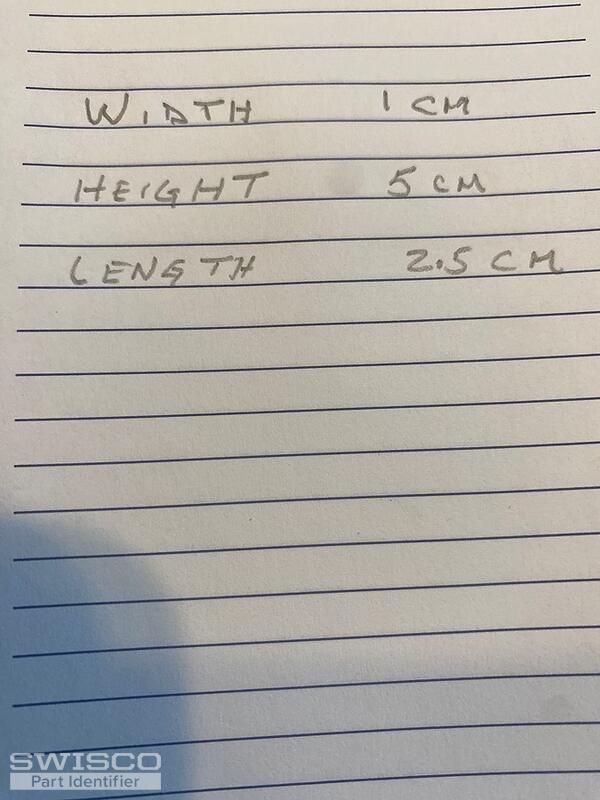 WIDTH 1 CM
HEIGHT 5 CM
LENGTH 2.5 CM
SWISCO
Part Identifier